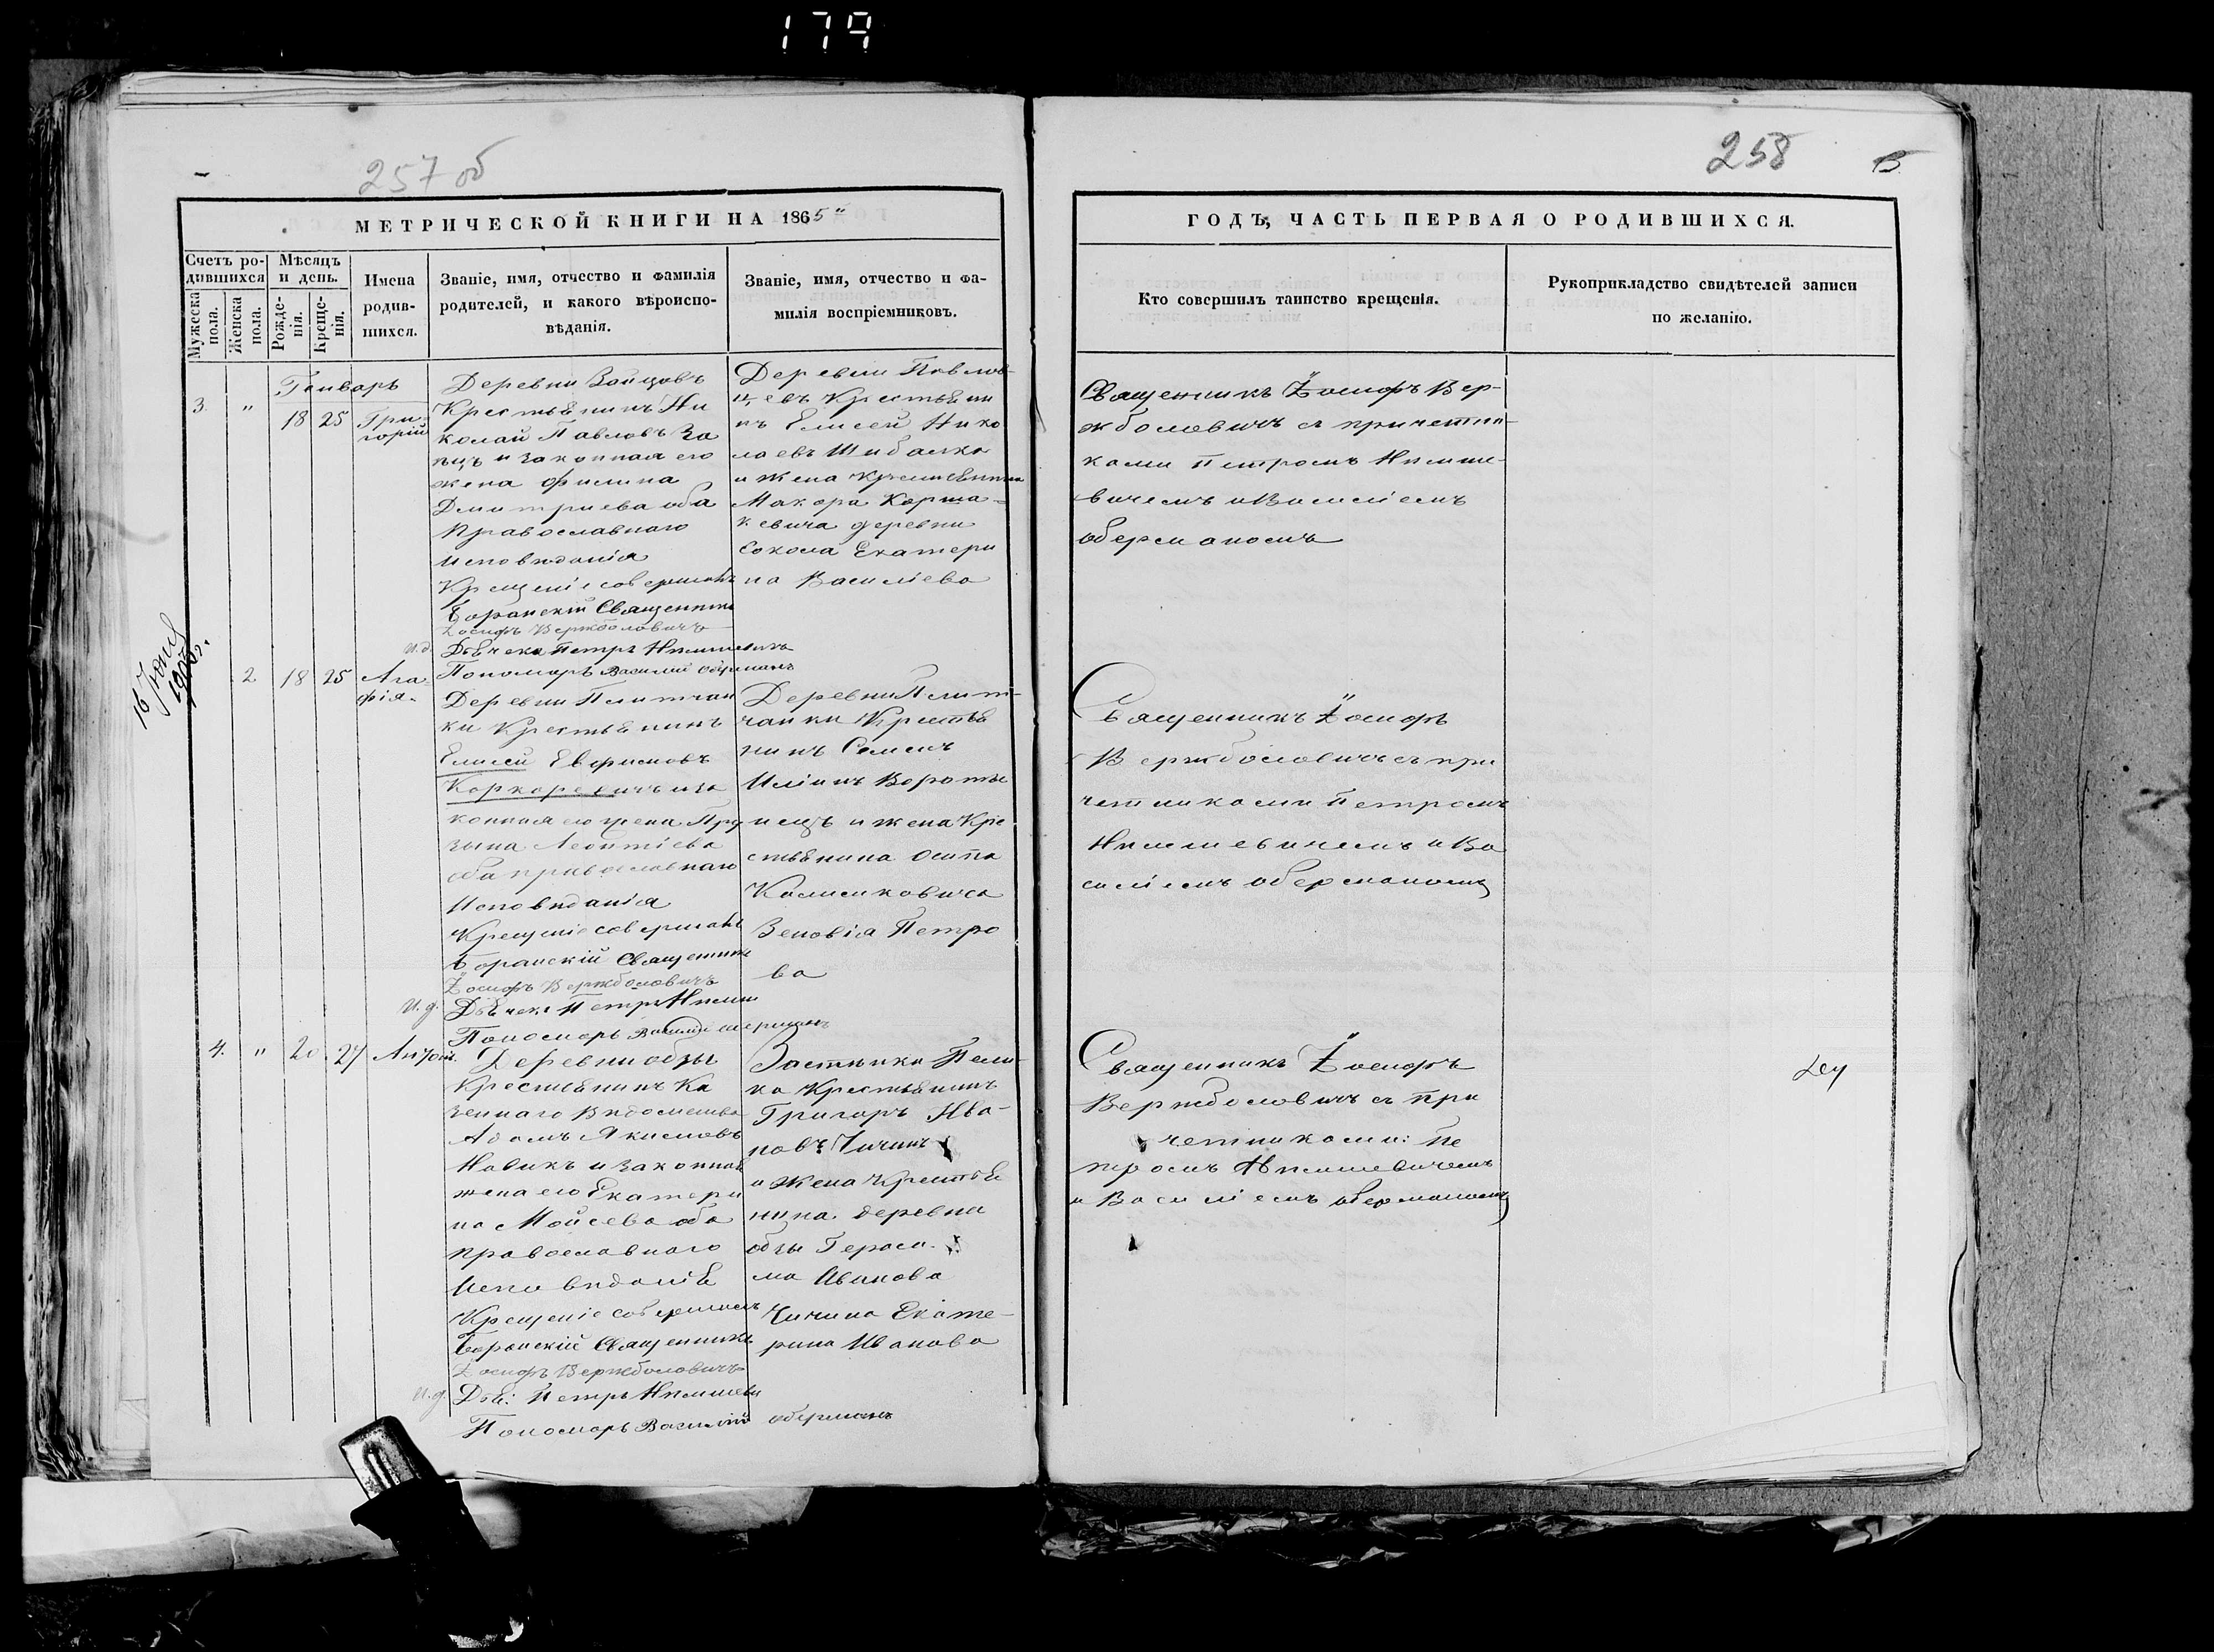 179
257 об
258
МЕТРИЧЕСКОЙ КНИГИ НА 1865
Счетъ ро-
дившихся
Мужеска
пола.
Женска
пола.
Мѣсяцъ
и день.
Рожде-
нія.
Креще-
нія.
Имена
родив-
шихся.
Званіе, имя, отчество и фамилія
родителей, и какого вѣроиспо-
вѣданія.
Званіе, имя, отчество и фа-
милія воспріемниковъ.
ГОДЪ, ЧАСТЬ ПЕРВАЯ О РОДИВШИХСЯ.
Кто совершилъ таинство крещенія.
Рукоприкладство свидѣтелей записи
по желанію.
3. "
Генварь
18 25
Гри
горій
Деревни
Крестьянинъ Ни
колай Павловъ За
яцъ и законная его
жена
Дмитриева оба
Православнаго
Исповѣданія
Крещеніе совершалъ
Священникъ
Іосифъ Вержболовичъ
и.д. Дьячека Петръ
Пономаръ Василий Оберманъ
Деревни
цевъ Крестьяни
нъ Елисей Нико
лаевъ Шибалко
и жена Крестьянина
Макара Корша-
кевича деревни
Сокола Екатери
на Василіева
Священникъ Іосифъ Вер-
жболовичъ съ причетни-
ками Петромъ
вичемъ и Василіемъ
Оберманомъ
16 Юня
2 18 25
Ага-
фія.
Деревни
ки Крестьянинъ
Елисей Евфимовъ
и за
конная его жена
Леонтіева
оба православнаго
Исповѣданія
Крещеніе совершалъ
Священникъ
Іосифъ Вержболовичъ
и.д. Дьячека Петръ
Пономаръ Василій Оберманъ
Деревни
чанки Крестья
нинъ Семенъ
Иліинъ
и жена Кре
стьянина Осипа
Зеновія Петро
ва
Священникъ Іосифъ
Вержболовичъ съ при
четниками Петромъ
и Ва
силіемъ Оберманомъ
4. " 20 27 Антоній.
Деревни Обзы
Крестьянинъ Ка
зеннаго Вѣдомства
Адамъ Якимовъ
Новикъ и законная
жена его Екатери
на Мойсева оба
православнаго
Исповѣданія
Крещеніе совершалъ
Священникъ
Іосифъ Вержболовичъ
и.д. Дья: Петръ
Пономаръ Василій Оберманъ
Застѣнка
Крестьянинъ
Григоръ Ива-
новъ Чичинъ
и жена Крестья
нина деревни
Обзы Гераси-
ма Иванова
Чичина Екате-
рина Иванова
Священникъ Іосифъ
Вержболовичъ съ при
четниками: Пе
тромъ
и Василіемъ Оберманомъ